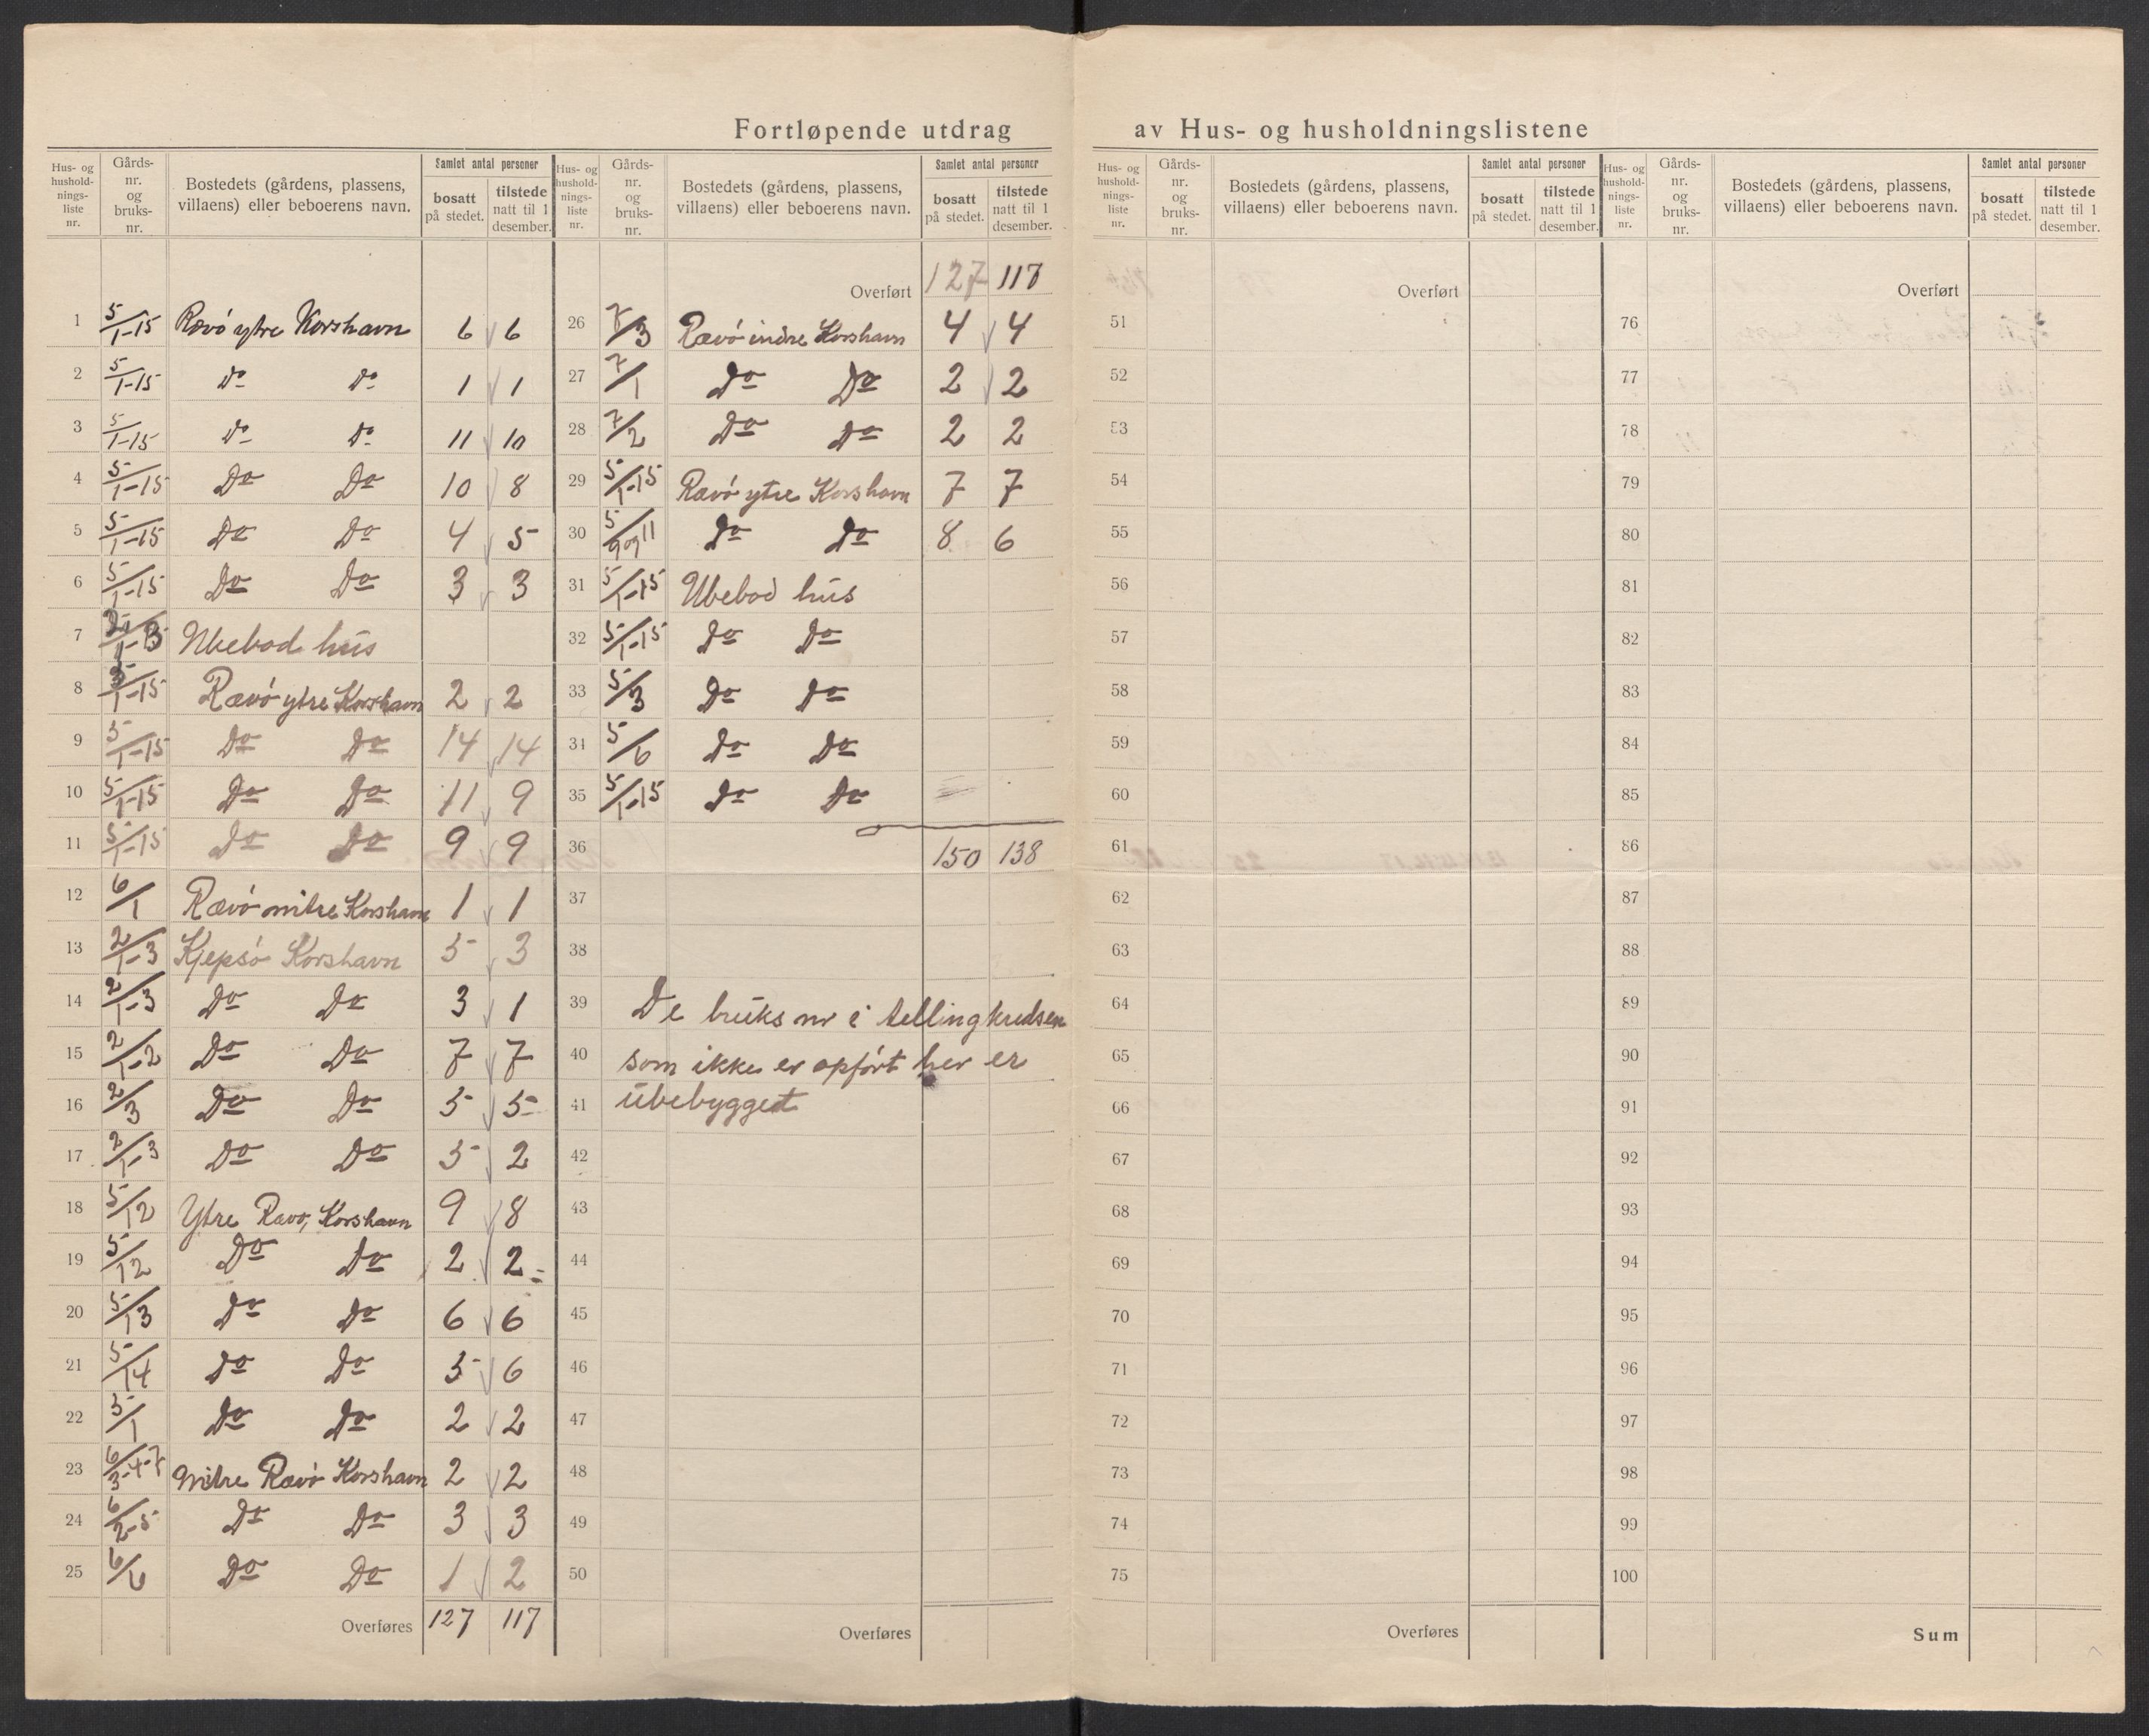 Fortløpende utdrag av Hus- og husholdningslistene
Hus- og hushold-nings-liste nr. | Gårds-nr. og bruks-nr. | Bostedets (gårdens, plassens, villaens) eller beboerens navn. | Samlet antal personer | bosatt på stedet. | tilstede natt til 1 desember.
1 5/1-15 Rævø ytre Korshavn 6 6
2 5/1-15 Do Do 1 1
3 5/1-15 Do Do 11 10
4 5/1-15 Do Do 10 8
5 5/1-15 Do Do 4 5
6 5/1-15 Do Do 3 3
7 Ubebod hus
8 5/1-15 Rævø ytre Korshavn 2 2
9 5/1-15 Do Do 14 14
10 5/1-15 Do Do 11 9
11 5/1-15 Do Do 9 9
12 6/1 Rævø mitre Korshavn 1 1
13 2/1-3 Kjepsø Korshavn 5 3
14 2/1-3 Do Do 3 1
15 2/1-2 Do Do 7 7
16 2/3 Do Do 5 5
17 2/1-3 Do Do 5 2
18 5/12 Ytre Rævø, Korshavn 9 8
19 5/12 Do Do 2 2
20 5/13 Do Do 6 6
21 5/14 Do Do 5 6
22 5/1 Do Do 2 2
23 6/3-4-7 Mitre Rævø Korshavn 2 2
24 6/2-5 Do Do 3 3
25 6/6 Do Do 1 2
Overføres 127 117
Hus- og hushold-nings-liste nr. | Gårds-nr. og bruks-nr. | Bostedets (gårdens, plassens, villaens) eller beboerens navn. | Samlet antal personer | bosatt på stedet. | tilstede natt til 1 desember.
Overført 127 117
26 7/3 Rævø indre Korshavn 4 4
27 7/1 Do Do 2 2
28 7/2 Do Do 2 2
29 5/1-15 Rævø ytre Korshavn 7 7
30 5/9 og 11 Do Do 8 6
31 5/1-15 Ubebod hus
32 5/1-15 Do Do
33 5/3 Do Do
34 5/6 Do Do
35 5/1-15 Do Do
36 150 138
37
38
39 De bruks nr i tellingkredsen
40 som ikke er opført her er
41 ubebygget
42
43
44
45
46
47
48
49
50
Overføres
Hus- og hushold-nings-liste nr. | Gårds-nr. og bruks-nr. | Bostedets (gårdens, plassens, villaens) eller beboerens navn. | Samlet antal personer | bosatt på stedet. | tilstede natt til 1 desember.
Overført
51
52
53
54
55
56
57
58
59
60
61
62
63
64
65
66
67
68
69
70
71
72
73
74
75
Overføres
Hus- og hushold-nings-liste nr. | Gårds-nr. og bruks-nr. | Bostedets (gårdens, plassens, villaens) eller beboerens navn. | Samlet antal personer | bosatt på stedet. | tilstede natt til 1 desember.
Overført
76
77
78
79
80
81
82
83
84
85
86
87
88
89
90
91
92
93
94
95
96
97
98
99
100
Sum